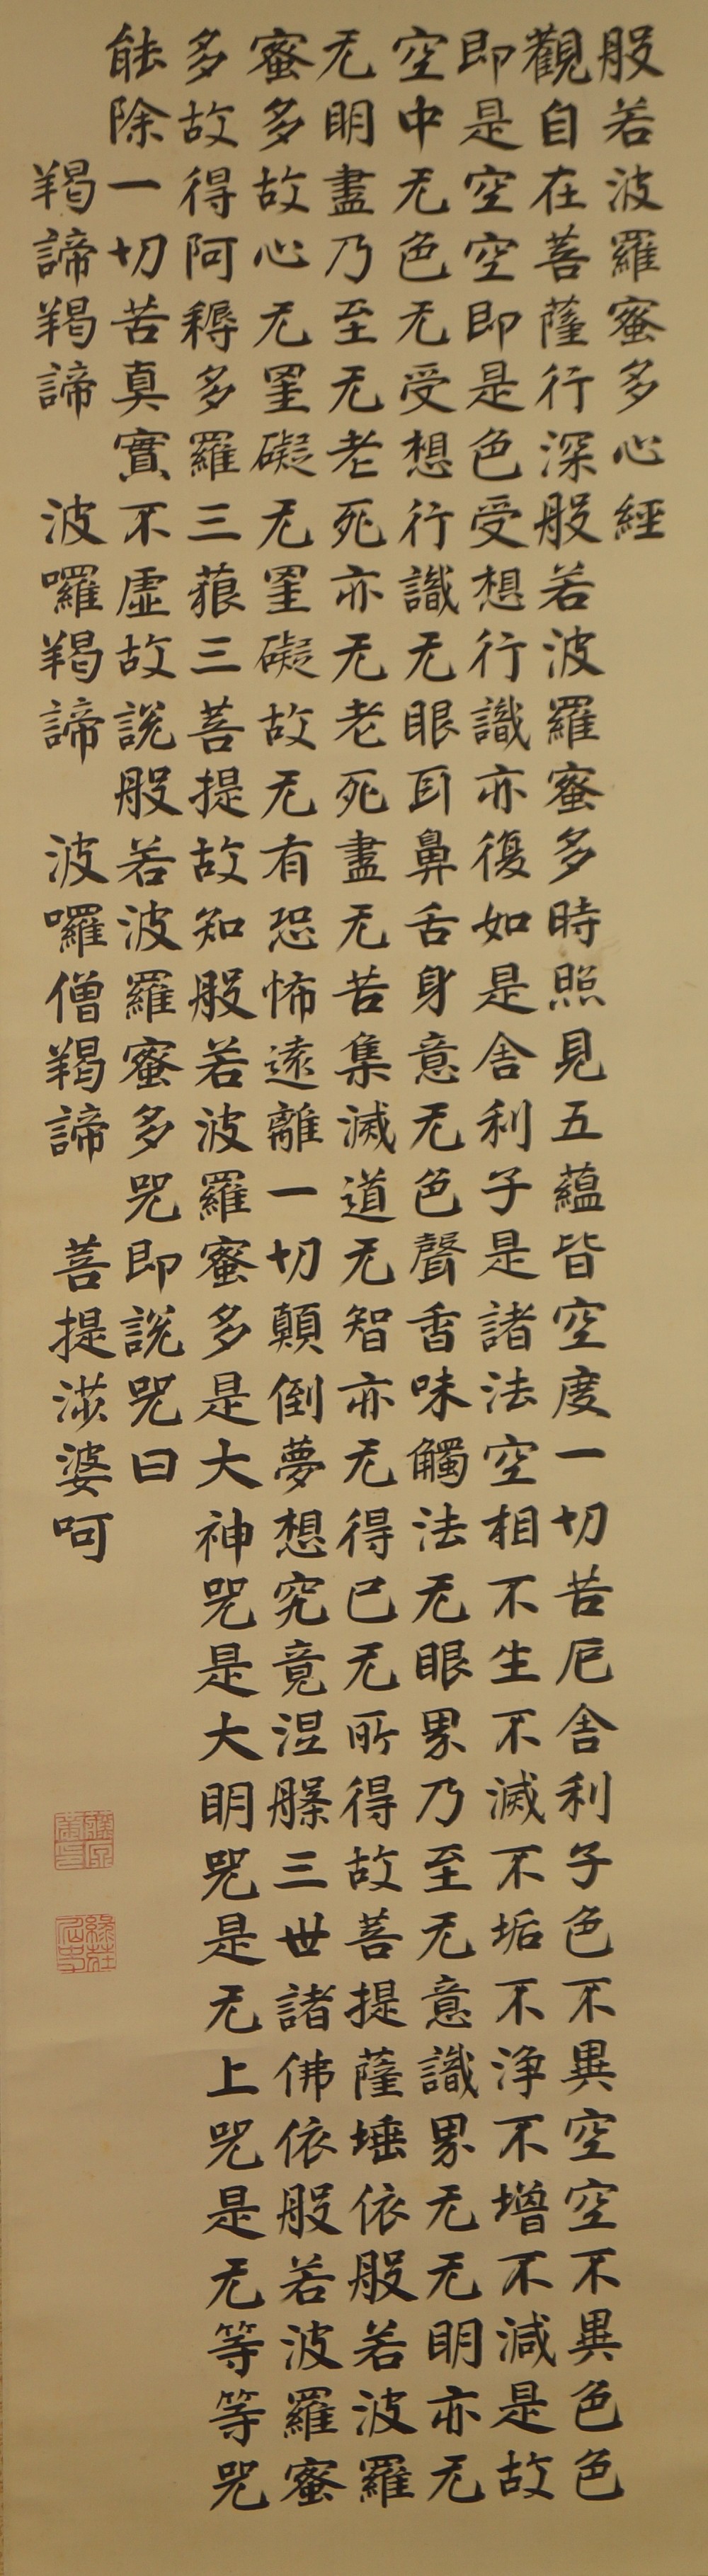 般若波羅蜜多心經
觀自在菩薩行深般若波羅蜜多時照見五蘊皆空度一切苦厄舍利子色不異空空不異色色
即是空空即是色受想行識亦復如是舍利子是諸法空相不生不滅不垢不浄不增不減是故
空中无色无受想行識无眼耳鼻舌身意无色聲香味觸法无眼界乃至无意識界无无明亦无
无明盡乃至无老死亦无老死盡无苦集滅道无智亦无得已无所得故菩提薩埵依般若波羅
蜜多故心无罣礙无罣礙故无有恐怖遠離一切顛倒夢想究竟涅槃三世諸佛依般若波羅蜜
多故得阿耨多羅三藐三菩提故知般若波羅蜜多是大神咒是大明咒是无上咒是无等等咒
能除一切苦真實不虛故說般若波羅蜜多咒即說咒曰
羯諦羯諦 波囉羯諦 波囉僧羯諦 菩提婆呵